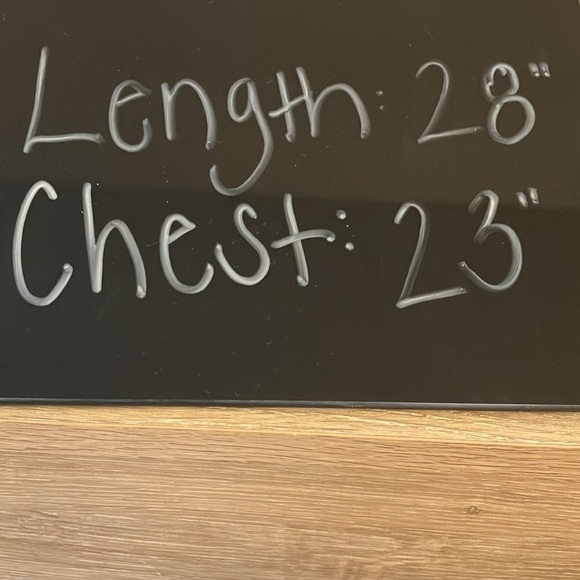 Length: 28"
Chest: 23"